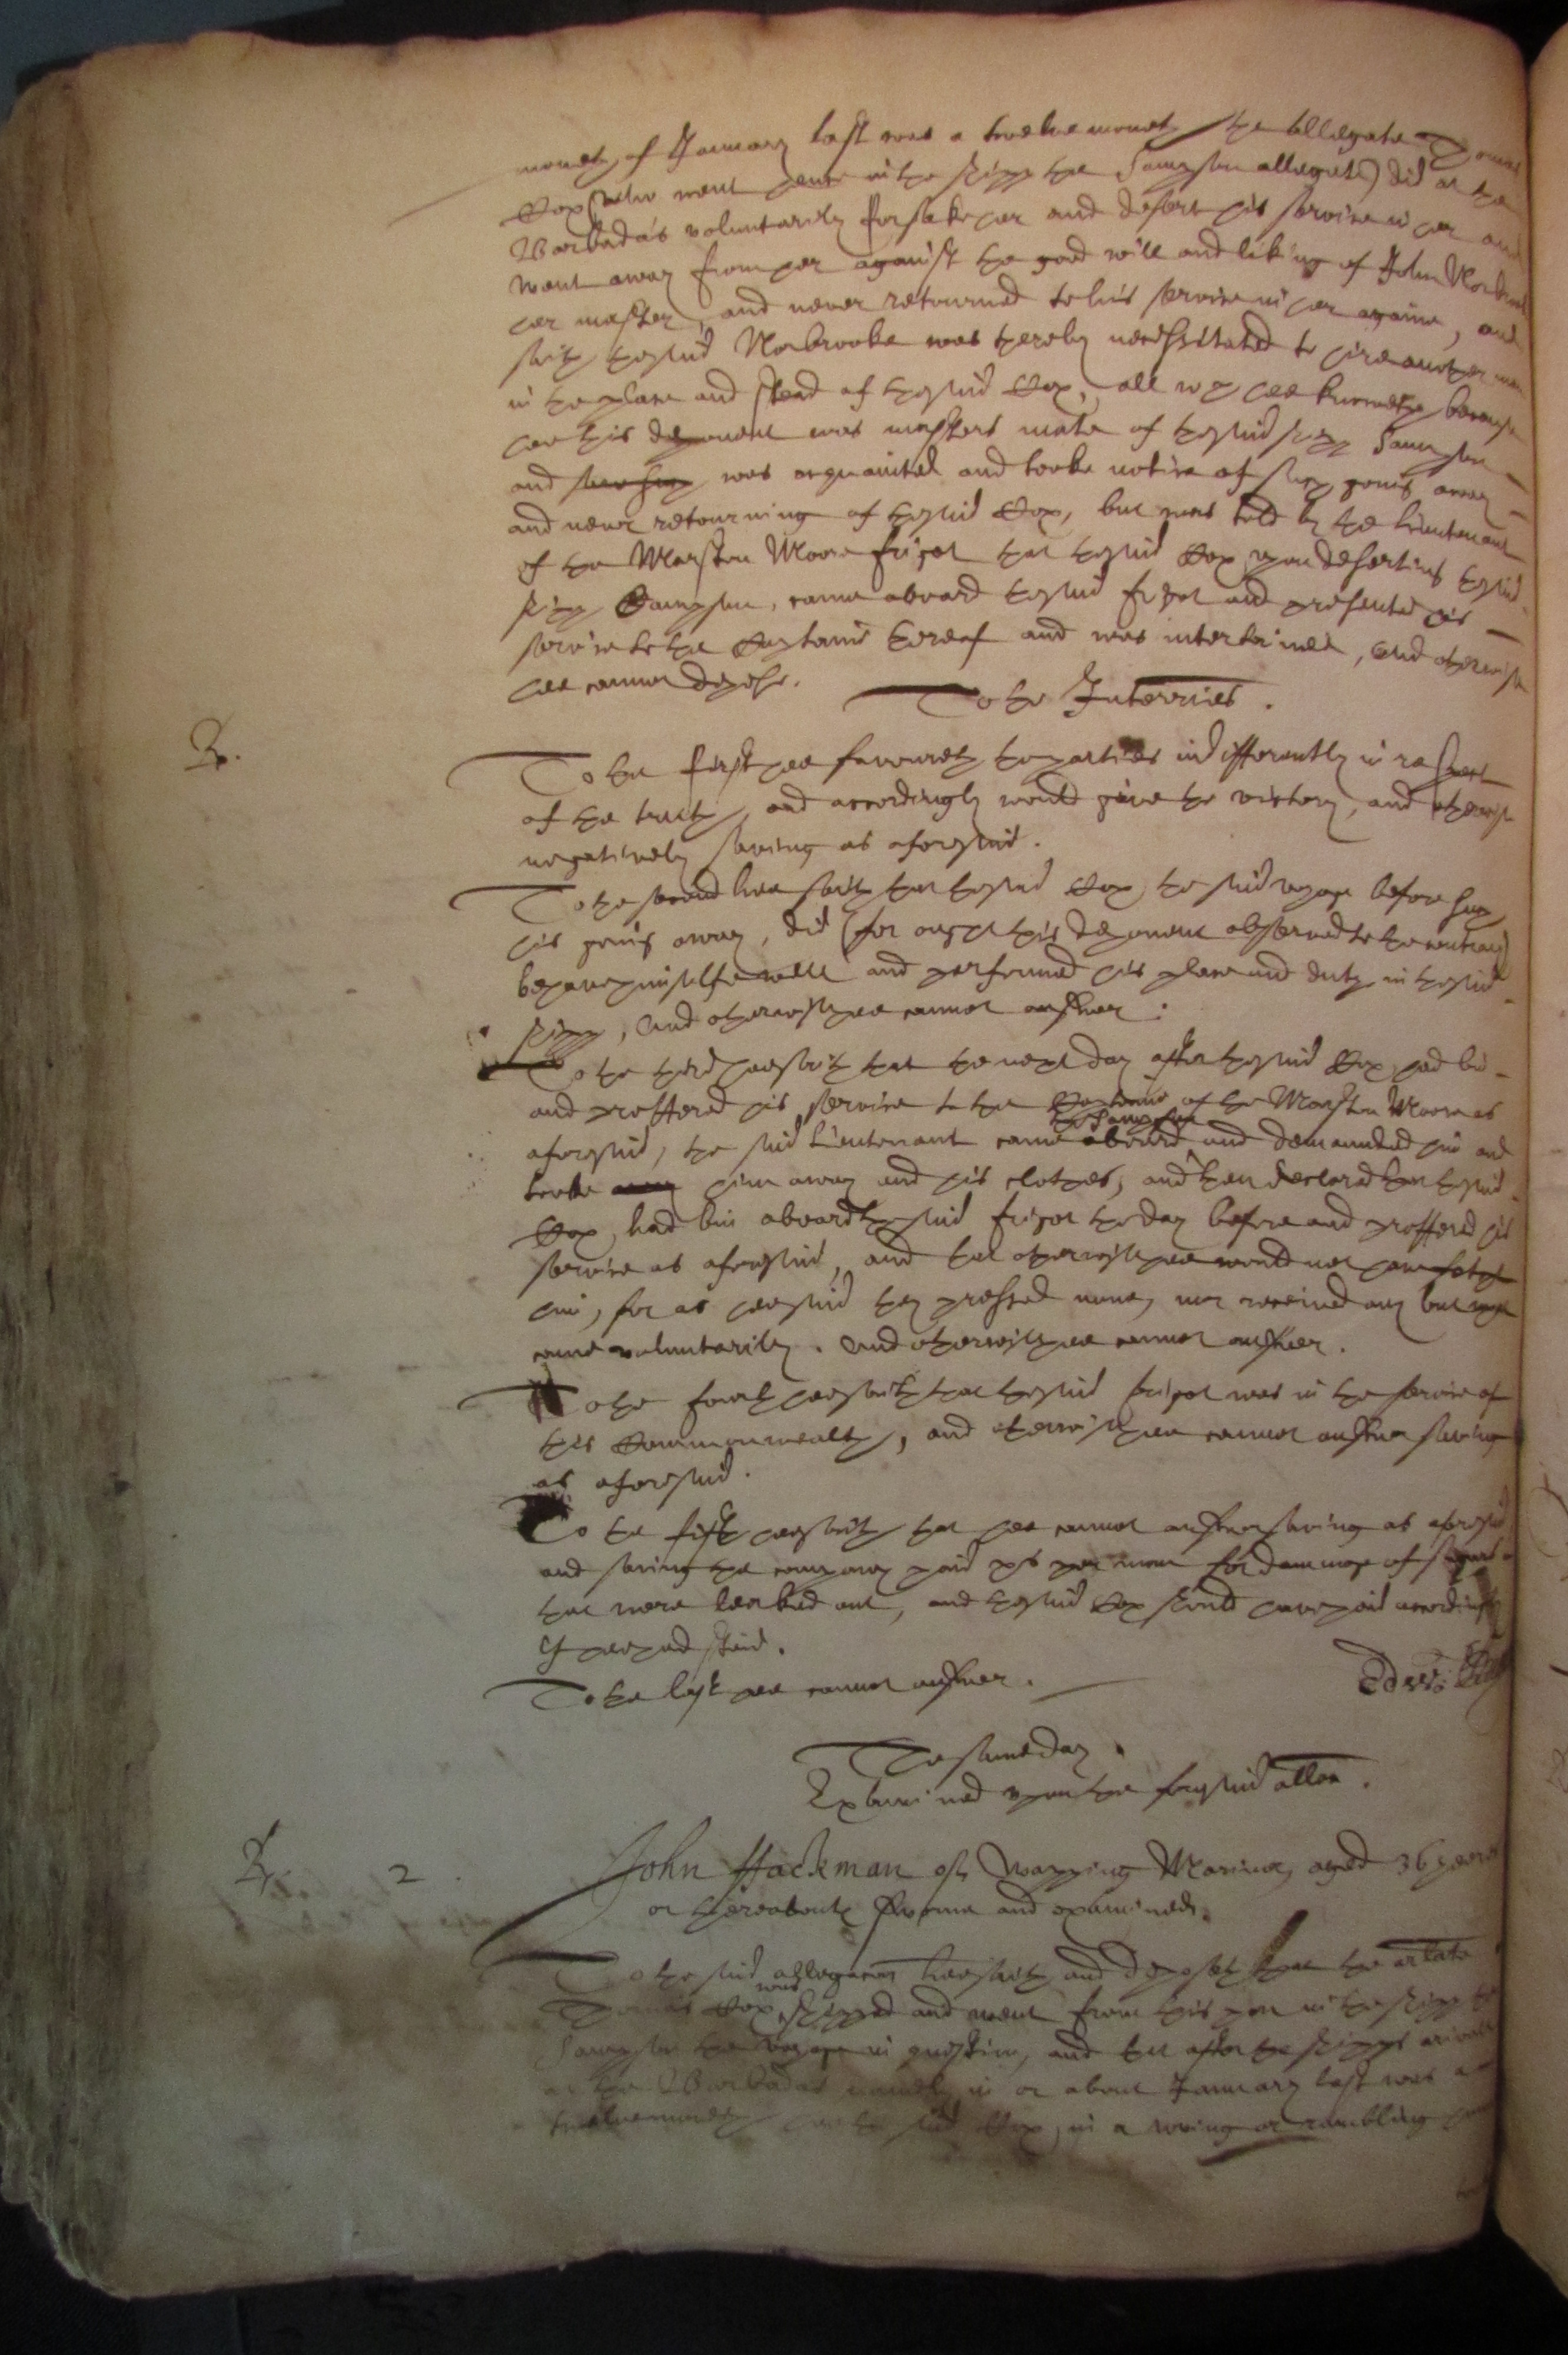 moneth of January last was a twelve moneth the allegate Thomas
Cox (who went hence in the shipp the Sampson allegate) did at the
Barbada's voluntarily forsake her and desert his service in her and
went away from her against the good will and liking of John Norbrooke
her master, and never retourned to his service in her againe, and
saith the said Norbrooke was thereby necessitated to hire another man
in the place and stead of the said Cox, all wch hee knoweth because
hee this deponent was masters mate of the said shipp Sampson
and was acquainted and tooke notice of such going away
and never retourning of the said Cox, but was told by the lieutenant
of the Marston Moore frigot that the said Cox upon deserting the said
shipp Sampson, came aboard the said frigot and presented his
service to the Captaine thereof and was intertained, And otherwise
hee cannot depose.
To the Interries.
To the first hee favoureth the parties indifferently in respect
of the truth, and accordingly would give the victory, and otherwise
negatively saving as aforesaid.
To the second hee saith that the said Cox the said voyage before such
his going away, did (for ought this deponent observed to the contrary)
behave himselfe well and performed his place and duty in the said
shipp, And otherwise hee cannot answer.
To the third hee saith that the next day after the said Cox had bin
and proffered his service to the Captaine of the Marston Moore as
aforesaid, the said lieutenant came aboard the Sampson and demaunded him and
tooke away him away and his clothes, and then declared that the said
Cox had bin aboard the said frigot the day before and proffered his
service as aforesaid, and that otherwise hee would not have fetcht
him, for as hee said they pressed none, nor received any but
came voluntarily. And otherwise hee cannot answer.
To the fourth hee saith that the said frigot was in the service of
this Commonwealth, and otherwise hee cannot answer saving
as aforesaid.
To the fift hee saith that hee cannot answer saving as aforesaid
and saving the company paid per man for dammage of
that were leaked out, and the said Cox should have paid accordingly
if hee had staid.
To the last hee cannot answer.
Edw:
The same day.
Examined upon the foresaid allon.
2
John Hackman of Wapping Mariner, aged 36 yeares
or thereabouts sworne and examined.
To the said allegacon hee saith and deposeth that the arlate
Thomas Cox was shipped and went from this port in the shipp the
Sampson the voyage in question, and that after the shipps arivall
at the Barbadas namely in or about January last was a
twelvemoneth hee the said Cox, in a roving or rambling